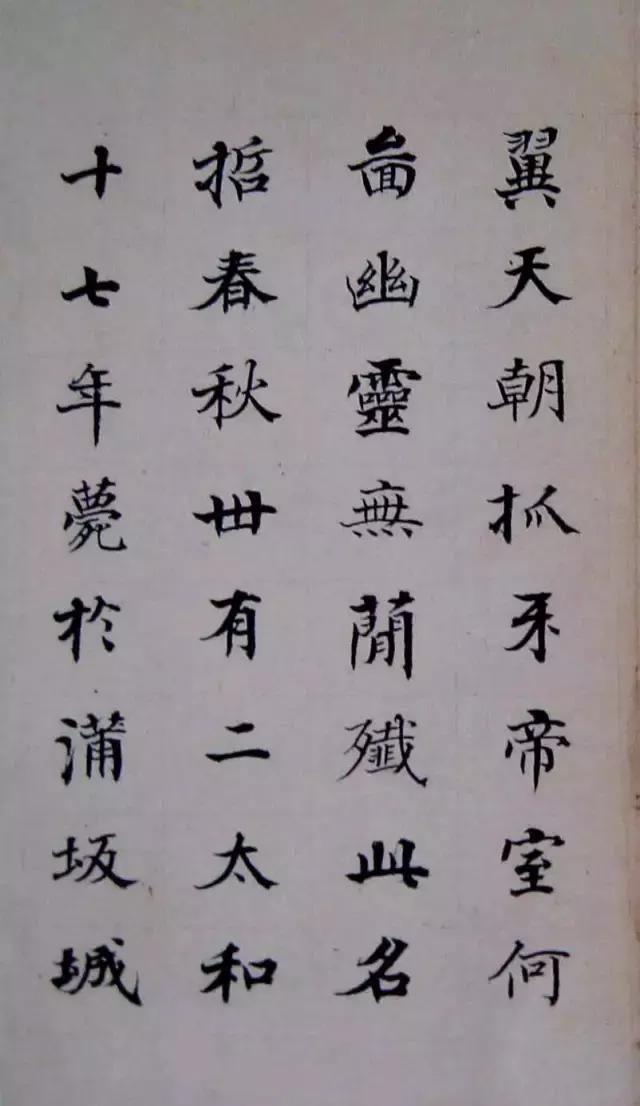 翼天朝抓牙帝室何
啚幽靈無蕳殲此名
哲春秋卌有二太和
十七年薨於蒲坂城